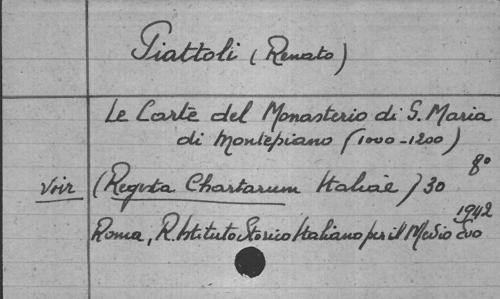 Piattoli (Renato)
Le Carte del Monasterio di S. Maria
di Montepiano (1000-1200)
8°
Voir (Regesta Chartarum Italiae) 30
1942
Roma, R. Istituto Storico Italiano per il Medio Evo